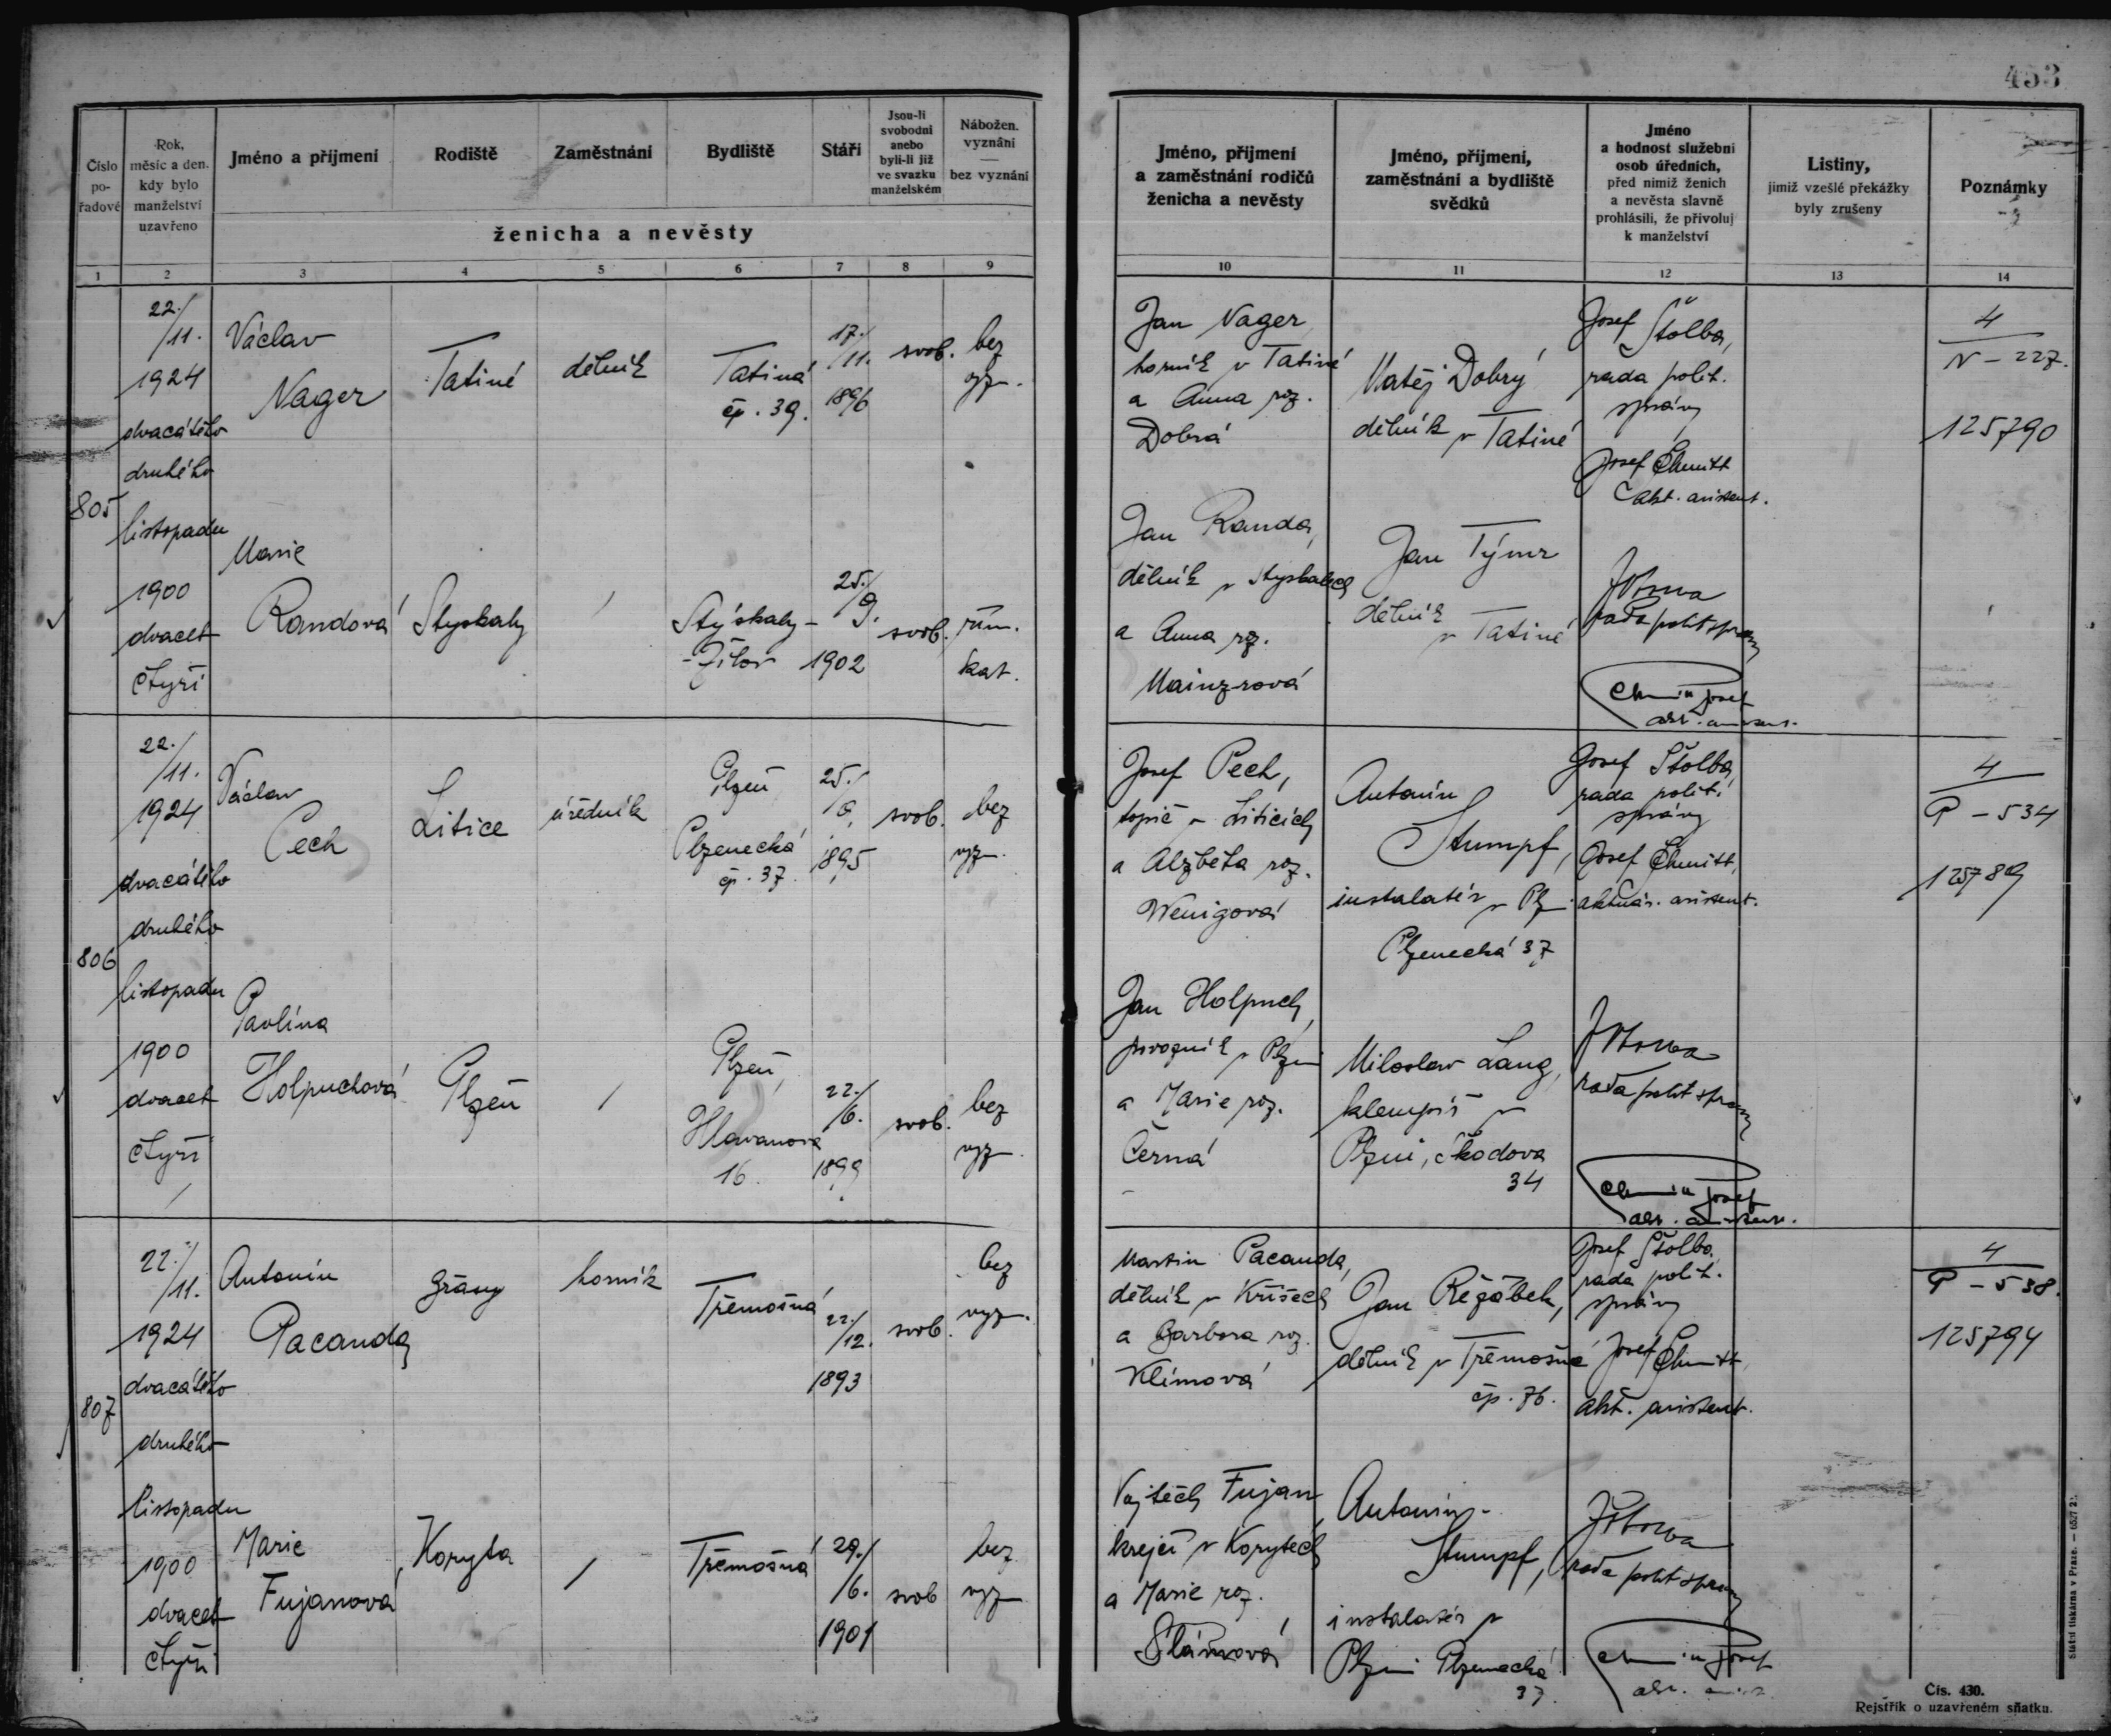 453
Číslo
po-
řadové
Rok,
měsíc a den,
kdy bylo
manželství
uzavřeno
Jméno a příjmení
Rodiště
Zaměstnání
Bydliště
Stáří
Jsou-li
svobodni
anebo
byli-li již
ve svazku
manželském
Nábožen.
vyznání
—
bez vyznání
ženicha a nevěsty
1 2 3 4 5 6 7 8 9
Jméno, příjmení
a zaměstnání rodičů
ženicha a nevěsty
Jméno, příjmení,
zaměstnání a bydliště
svědků
Jméno
a hodnost služební
osob úředních,
před nimiž ženich
a nevěsta slavně
prohlásili, že přivolují
k manželství
Listiny,
jimiž vzešlé překážky
byly zrušeny
Poznámky
10 11 12 13 14
805
22./
/11.
1924
dvacátého
druhého
listopadu
1900
dvacet
čtyři
Václav
Nager
Tatiné
dělník
Tatiná
čp. 39.
17./
/11.
1896
svob.
bez
vyzn.
Jan Nager
horník v Tatiné
a Anna roz.
Dobrá
Matěj Dobrý
dělník v Tatiné
Josef Štolba,
rada polit.
správy
Josef Chmitt
akt. asistent.
4
N – 227.
125790
Marie
Randová
Stýskaly
/
Stýskaly –
– Žilov
25./
/9.
1902
svob.
řím.
kat.
Jan Randa,
dělník v Stýskalech
a Anna roz.
Mainzrová
Jan Týmr
dělník
v Tatiné
rada polit správy
806
22./
/11.
1924
dvacátého
druhého
listopadu
1900
dvacet
čtyři
/
Václav
Pech
Litice
úředník
Plzeň,
Plzenecká
čp. 37.
25./
/9.
1895
svob.
bez
vyzn.
Josef Pech,
topič v Liticích
a Alžběta roz.
Wenigová
Antonín
Stumpf,
instalatér v Plz
Plzenecká 37
Josef Štolba,
rada polit.
správy
Josef Chmitt,
aktuár. asistent.
4
P – 534
125789
Pavlína
Holpuchová
Plzeň
/
Plzeň,
Hlavanova
16.
22./
/6.
1899
svob.
bez
vyzn.
Jan Holpuch,
povozník v Plzni
a Marie roz.
Černá
Miloslav Lang,
klempíř v
Plzni, Škodova
34
rada polit správy
807
22./
/11.
1924
dvacátého
druhého
listopadu
1900
dvacet
čtyři
Antonín
Pacanda
Brány
horník
Třemošná
22./
/12.
1893
svob.
bez
vyzn.
Martin Pacanda,
dělník v Kříšech
a Barbora roz.
Klímová
Jan Řežábek,
dělník v Třemošné
čp. 76.
Josef Štolba,
rada polit.
správy
Josef Chmitt,
akt. asistent.
4
P – 538.
125794
Marie
Fujanová
Koryta
/
Třemošná
29./
/6.
1901
svob
bez
vyzn
Vojtěch Fujan,
krejčí v Korytech
a Marie roz.
Slámová
Antonín
Stumpf,
instalatér v
Plzni Plzenecká
37.
rada polit správy
Státní tiskárna v Praze. — 657/2
Čís. 430.
Rejstřík o uzavřeném sňatku.